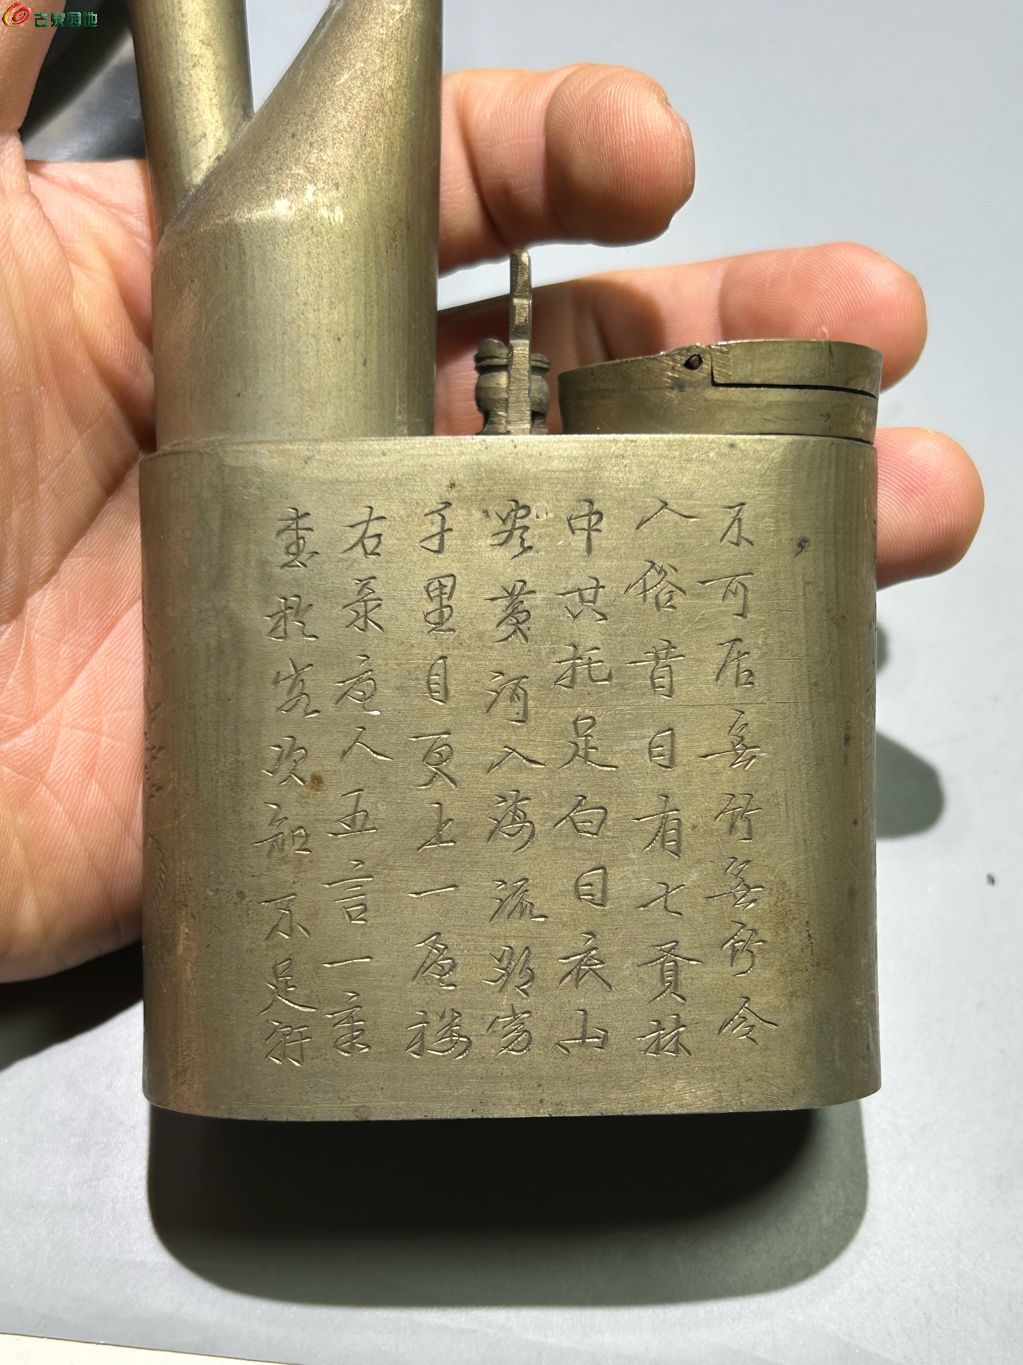 古泉园地
不可居無竹無竹令
人俗昔日有七賢林
中共托足白日衣山
尽黄河入海流欲穷
千里目更上一層楼
右录唐人五言一章
於客次 不足